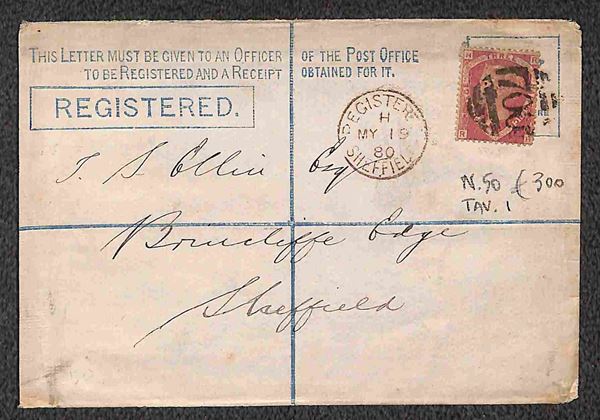 THIS LETTER MUST BE GIVEN TO AN OFFICER OF THE POST OFFICE
TO BE REGISTERED AND A RECEIPT OBTAINED FOR IT.
REGISTERED.
REGISTERED
H
MY 19
80
SHEFFIELD
THREE
700
T. S. Ellin Esq
N.50 £300
TAV. 1
Brincliffe Edge
Sheffield